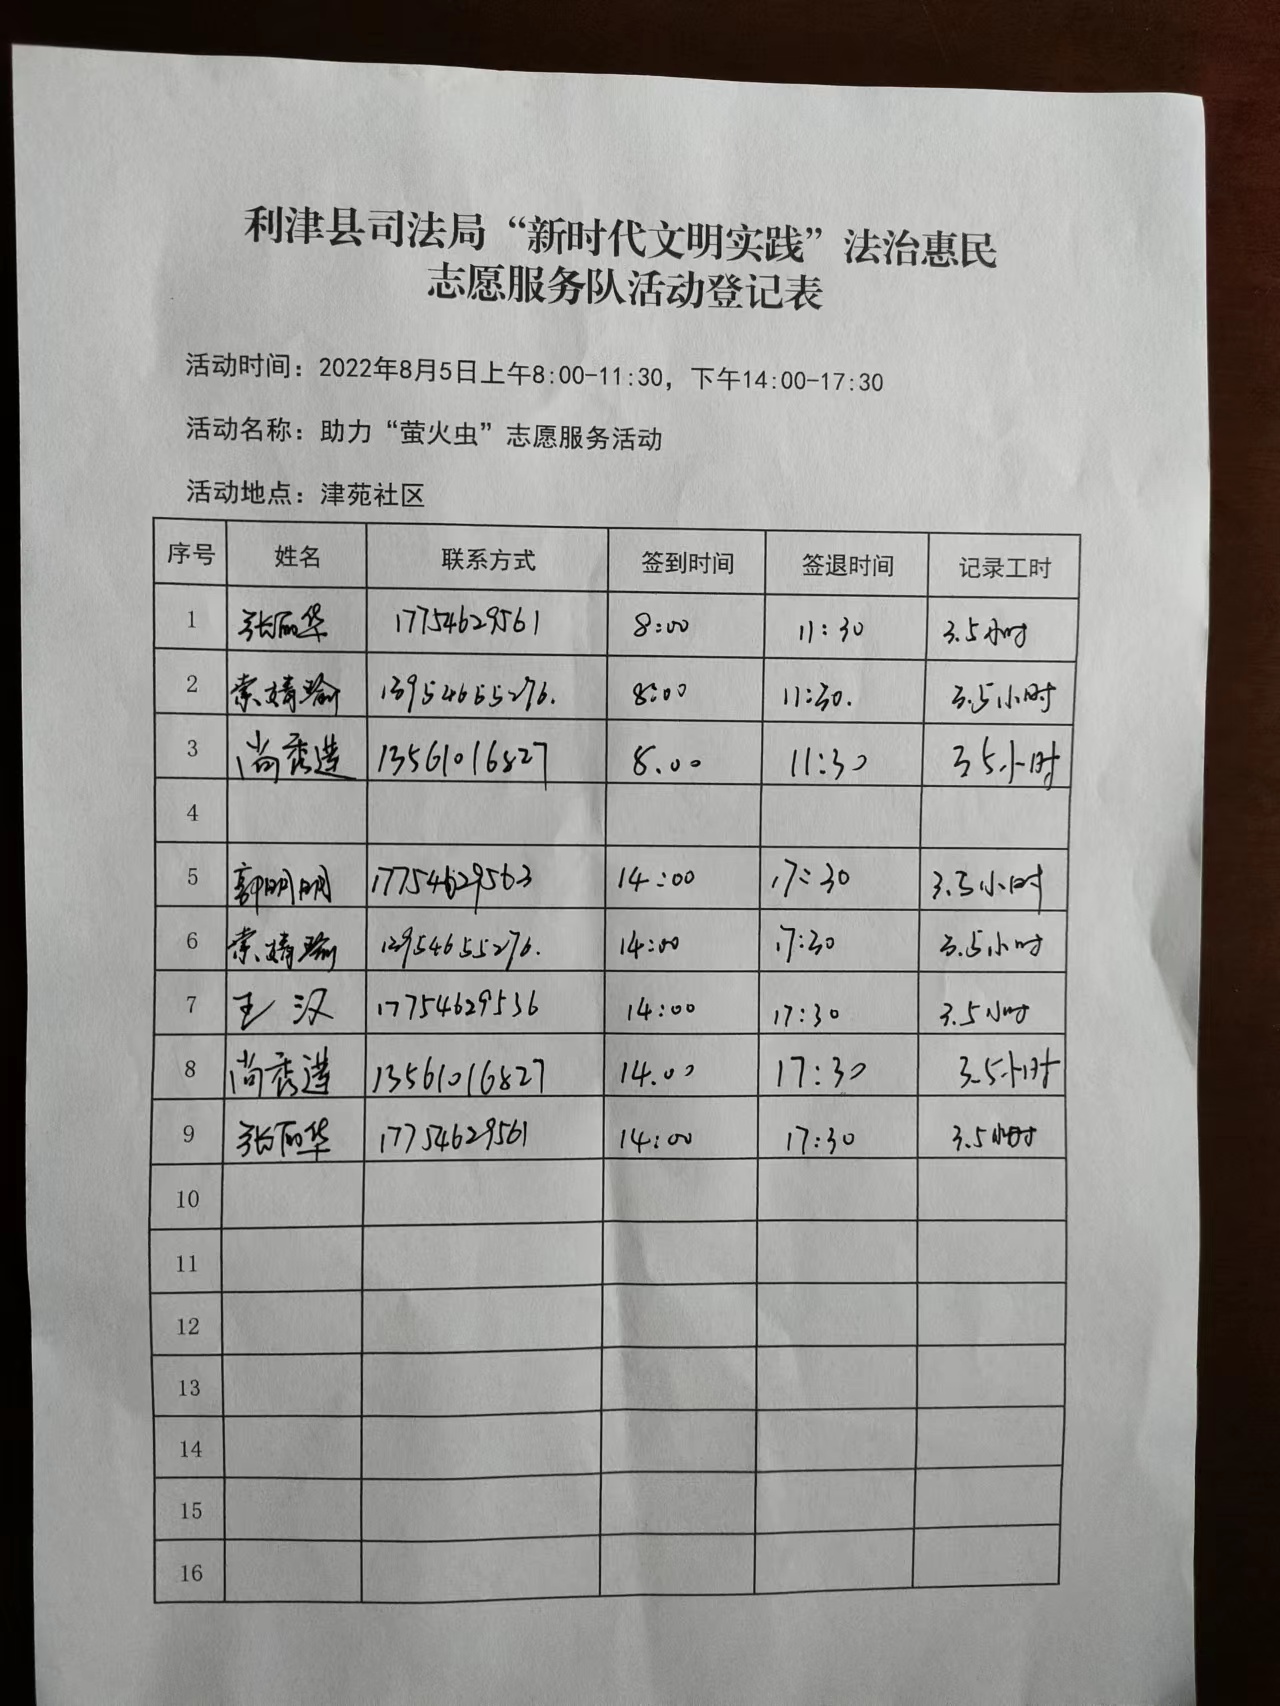 利津县司法局“新时代文明实践”法治惠民
志愿服务队活动登记表
活动时间：2022年8月5日上午8:00-11:30，下午14:00-17:30
活动名称：助力“萤火虫”志愿服务活动
活动地点：津苑社区
序号 姓名 联系方式 签到时间 签退时间 记录工时
1 张丽华 17754629561 8:00 11:30 3.5小时
2 索婧瑜 13954655276. 8:00 11:30. 3.5小时
3 尚秀莲 13561016827 8.00 11:30 3.5小时
4
5 郭明明 17754629563 14:00 17:30 3.5小时
6 索婧瑜 13954655276. 14:00 17:30 3.5小时
7 王汉 17754629536 14:00 17:30 3.5小时
8 尚秀莲 13561016827 14.00 17:30 3.5小时
9 张丽华 17754629561 14:00 17:30 3.5小时
10
11
12
13
14
15
16